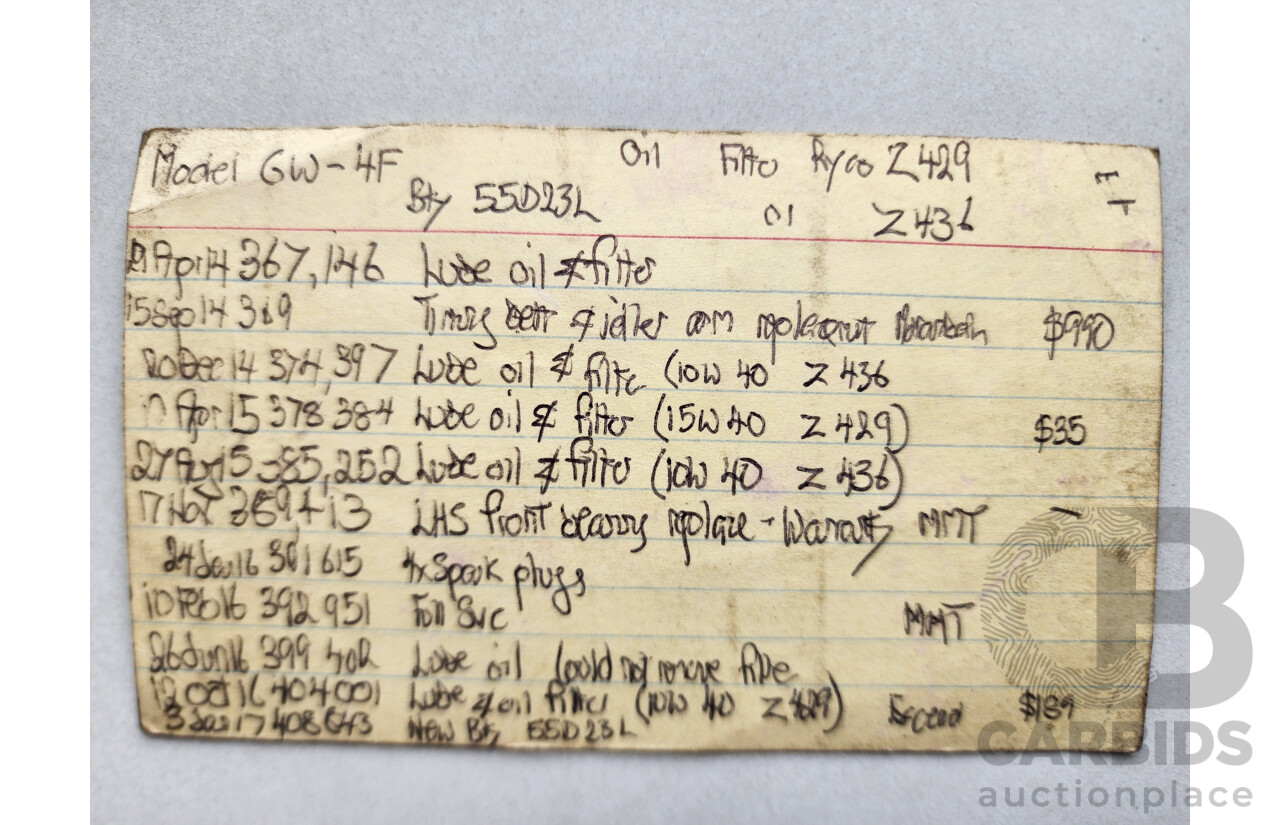 Model GW-4F Oil Filto Ryco Z429
Bty 55D23L Ol Z436
Apr14 367,146 Lube oil & filter
15Sep14 369 Timing belt & idler arm replacement $990
20Dec14 374,397 Lube oil & filte (10W 40 Z436
Apr15 378384 Lube oil & filter (15W40 Z429) $35
27 15 385,252 Lube oil & filter (10W 40 Z436)
17 Nov 389,413 LHS front bearing replace - Warranty MMT
24 16 391615 4x Spark plugs
10Feb16 392951 Full Svc MMT
26Jun16 399 Lube oil Could not remove
12Oct16 404001 Lube & oil filter (10W 40 Z429) $189
3 17 408 New Bty 55D23L
CARBIDS
auctionplace